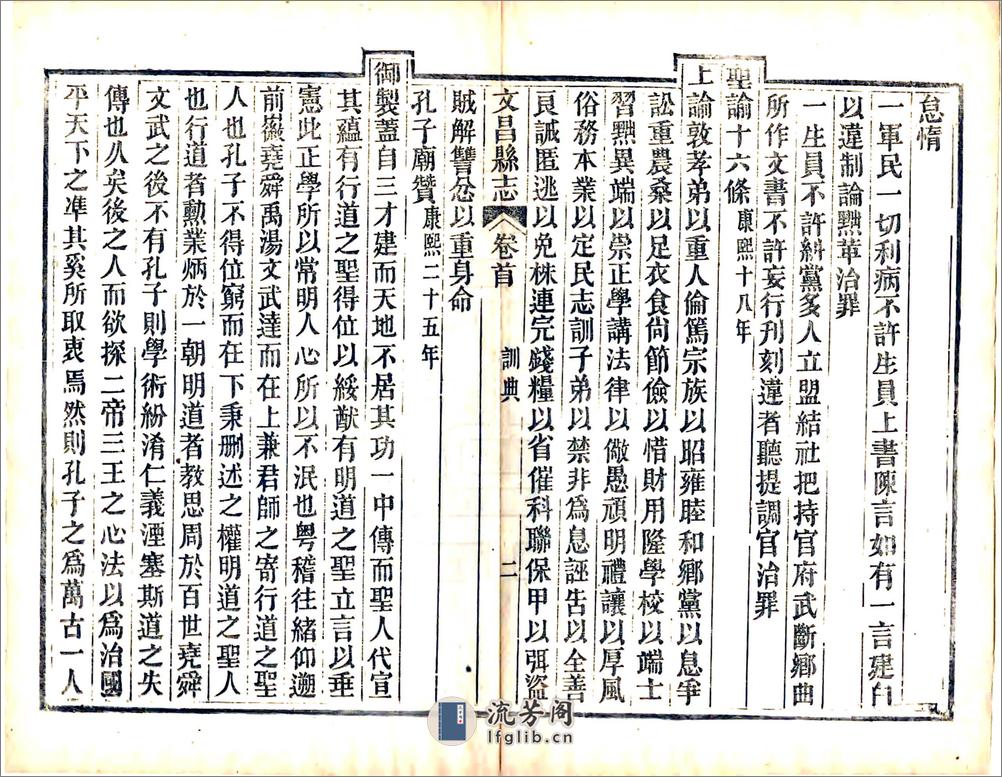 怠惰
一軍民一切利病不許生員上書陳言如有一言建白
以違制論黜革治罪
一生員不許糾黨多人立盟結社把持官府武斷鄉曲
所作文書不許妄行刊刻違者聽提調官治罪
聖諭十六條康熙十八年
上諭敦孝弟以重人倫篤宗族以昭雍睦和鄉黨以息爭
訟重農桑以足衣食尙節儉以惜財用隆學校以端士
習黜異端以崇正學講法律以儆愚頑明禮讓以厚風
俗務本業以定民志訓子弟以禁非爲息誣告以全善
良誡匿逃以免株連完錢糧以省催科聯保甲以弭盜
文昌縣志 卷首 訓典 二
賊解讐忿以重身命
孔子廟贊康熙二十五年
御製蓋自三才建而天地不居其功一中傳而聖人代宣
其蘊有行道之聖得位以綏猷有明道之聖立言以垂
憲此正學所以常明人心所以不泯也粵稽往緒仰遡
前徽堯舜禹湯文武達而在上兼君師之寄行道之聖
人也孔子不得位窮而在下秉刪述之權明道之聖人
也行道者勳業炳於一朝明道者教思周於百世堯舜
文武之後不有孔子則學術紛淆仁義湮塞斯道之失
傳也久矣後之人而欲探二帝三王之心法以爲治國
平天下之准其奚所取衷焉然則孔子之爲萬古一人
流芳阁
lfglib.cn